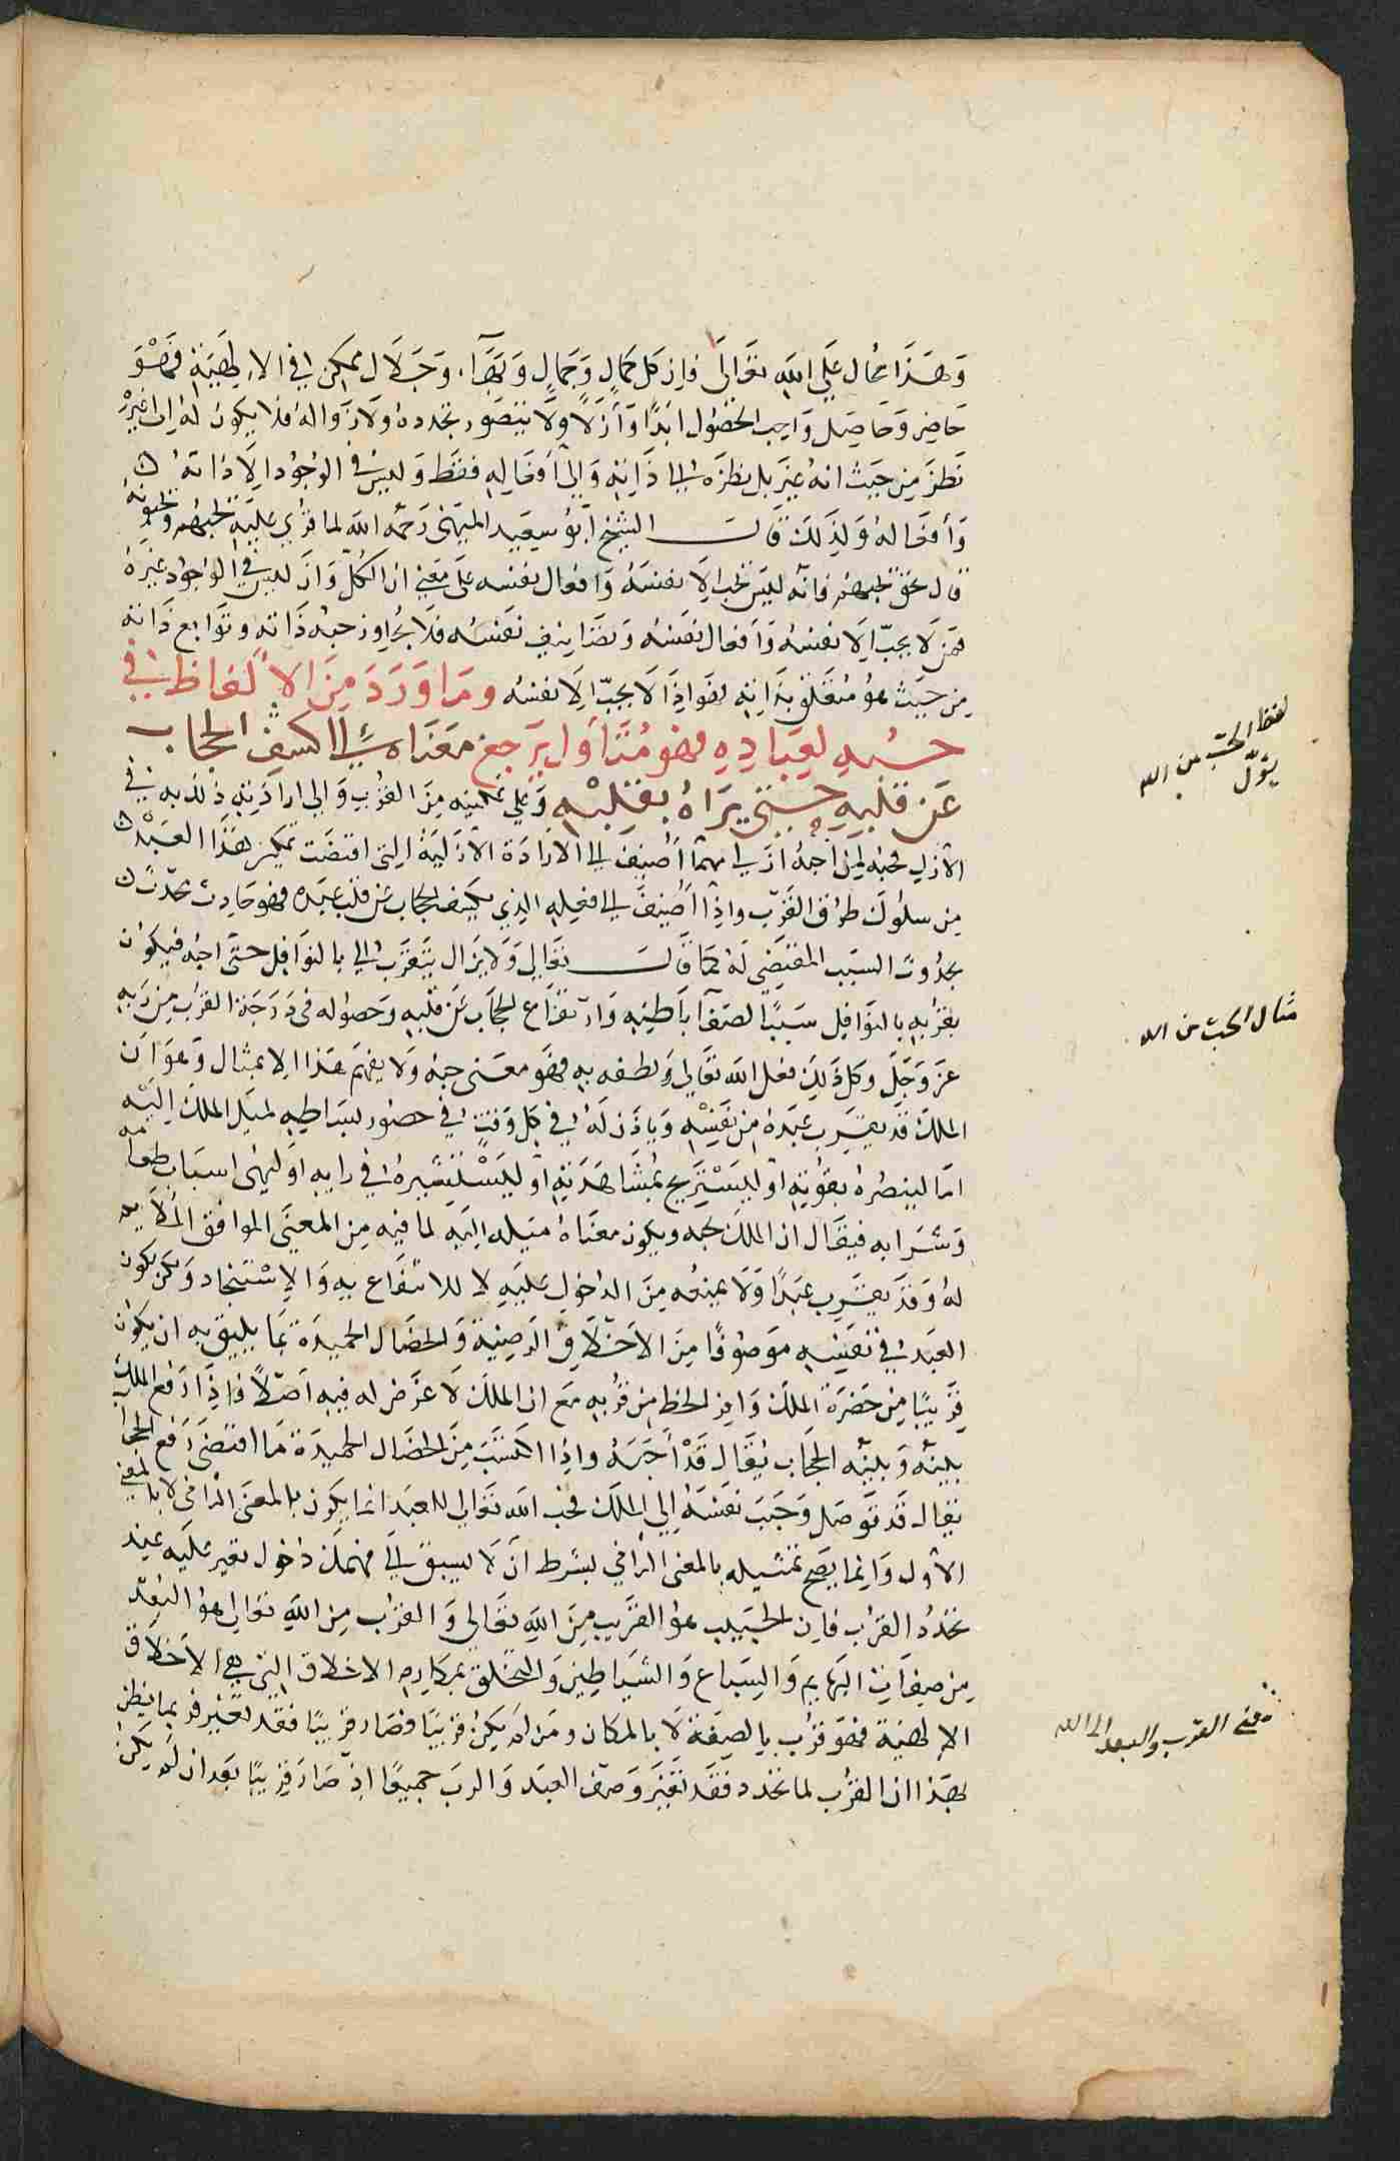 وَهَذَا محال عَلَى اللهِ تعَالَى فاِن كل كمالٍ وَجَمالٍ وَبَهَآء وَجَلَال ممكن في الإلهَيّةِ فَهُوَ
حَاضِر وَحَاصِل وَاجب الحصُول ابَدًا وَأزَلًا وَلَا يتصَور تجدده ولَا زَواله فلا يكون له إلى غيرْ
نَظَر مِن حَيث انهُ غير بل نظَرَه إلى ذَاتِهِ وَإلى أفعَالِهِ فقَط وَليسَ في الوجُود إلَّا ذاتهُ
وَأفعَالهُ وَلِذَلكَ قَالَ الشيخ أبو سعِيد الميهَنى رَحمَه الله لما قرئ عليَهِ يحبهُم ويحبونهُ
قال بحق يحبهم فانه ليَسَ يحب إلَا نفسَهُ وَافعال نفسه على مَعنى انه الكُلّ وَانَ ليس في الوجود غيرهُ
فمَن لَا يحبّ إلَا نفسَهُ وَافعَال نفَسهُ وَتصَانيفِ نفَسهُ فلَا يجاوز حبه ذَاته وتوَابع ذَاته
مِن حَيث هو مُتعَلق بذَاتِهِ فهَوَ اِذًا لَا يحبّ إلَا نفسَهُ ومَا وَرَدَ مِنَ الألفاظ في
حبه لعِبَادِهِ فهو مُتأوَل يَرجع معنَاه إلى كشفِ الحجَاب
عَن قلبهِ حَتىَ يرَاهُ بقلبْهِ وَإلى تمكينه مِنَ القُرب وَإلى ارادَتِهِ ذَلك به في
الأزل فحبه لمن أحبهُ ازَلي مهما أُضِيفَ إلى الارادَة الأزَليَة التي اقتضَت تمكين هَذَا العَبْد
مِن سلوك طرُق القَرب واِذَا أُضِيفَ إلى فعله الذِي يكشف الحجَاب عَن قلب عَبده فهو حَادِث يحدثُ
بحدُوث السَبب المقتَضي لهُ كما قَالَ تعَالى وَلَا يزَال يتقرب إلي بالنوَافل حتَى احبه فيكوُن
بقربه بالنوَافل سَببًا لصَفآ بَاطِنِهِ وَارتفاع الحجَاب عَن قلبِهِ وَحصُوله في دَرَجَة القرب مِن رَبهِ
عَز وَجَلَ وكل ذَلكَ فعل الله تعَالي وَلطفه بهِ فهَو معَنى حبه وَلَا يفهَم هَذا الا بمثال وَهوَ أن
الملك قد يقرب عبَدَهُ مِن نفَسِهِ وَيأذَن لَهُ في كل وَقتٍ في حضور بسَاطِهِ لميَل الملك إليَهِ
امَا لينصرهُ بقوتِهِ أو ليَسْتريح بمُشَاهَدَتِهِ أو ليَسْتشيرهُ في رايهِ أو ليهئ اسبَاب طعامه
وَشَرابه فيقَال ان الملك يحبه ويكون معنَاهُ مَيله إليَهِ لما فيه مِن المعنَى الموافق الملايم
لهُ وَقد يقرب عبَدًا وَلَا يمنعه مِنَ الدخول عليَهِ لا للانتفَاع بهِ وَالإسْتنجاد وَلكن يكون
العَبد في نفَسِهِ موَصُوفًا مِنَ الأخلَاق الرَضِيَّة وَالخصَال الحميدَة بَما يليق به ان يكون
قرَيبًا مِن حَضرَة الملك وَافر الحظ مِن قربهِ مَع ان الملك لَا غرَض له فيهِ أصلًا فاِذَا رَفع الملك
بينَهُ وَبينه الحجَاب يُقَال قَدْ أحَبهُ واِذا اكتسَبَ مِنَ الخصَال الحميدَة مَا اقتضى رَفع الحجَاب
يقال قد توَصل وَحَببَ نفسَهُ إلى الملك فحب الله تعَالى للعبَد انما يكون بالمعنَى الثاني لا بالمعنى
الأول وَانما يصَح تمثيله بالمعنى الثاني بشرط أن لَا يسبق إلى فهمك دُخول تغير عليه عند
تجدُد القرب فاِن الحَبيب هو القَريب مِنَ اللهِ تعَالى وَالقرب مِن اللهِ تعالى هو البُعد
مِن صِفَات البَهَايم وَالسَبَاع وَالشيَاطِين وَالتخلق بمكَارم الاخلاق التي هي الأخلَاق
الإلهَيّة فهوَ قرُب بالصِفَة لَا بالمكان ومَن لم يكن قريبًا فصَار قريبًا فقد تغير فربما يظن
بهَذا ان القرب لما تجدد فقد تغيَر وَصف العبَد وَالرب جميعًا اذ صَارَ قريبًا بعَد ان لَم يكن
لفظ الحب من الله
يؤول
مثال الحب من الله
معنى القرب والبعد الى الله